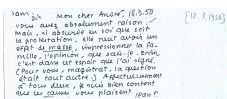 Mon cher André, 18.3.50 [18.3.1950]
vous avez absolument raison.
Mais, si absurde en soi que soit
la protestation, elle peut avoir un
effet de masse, impressionner la fa-
mille, l'opinion, que sais-je. Enfin,
c'est dans cet espoir que j'ai signé.
(Pour vous, magistrat, la question
était tout autre.) Affectueusement
à tous deux, je suis bien content
que les vous plaisent. Jean P.